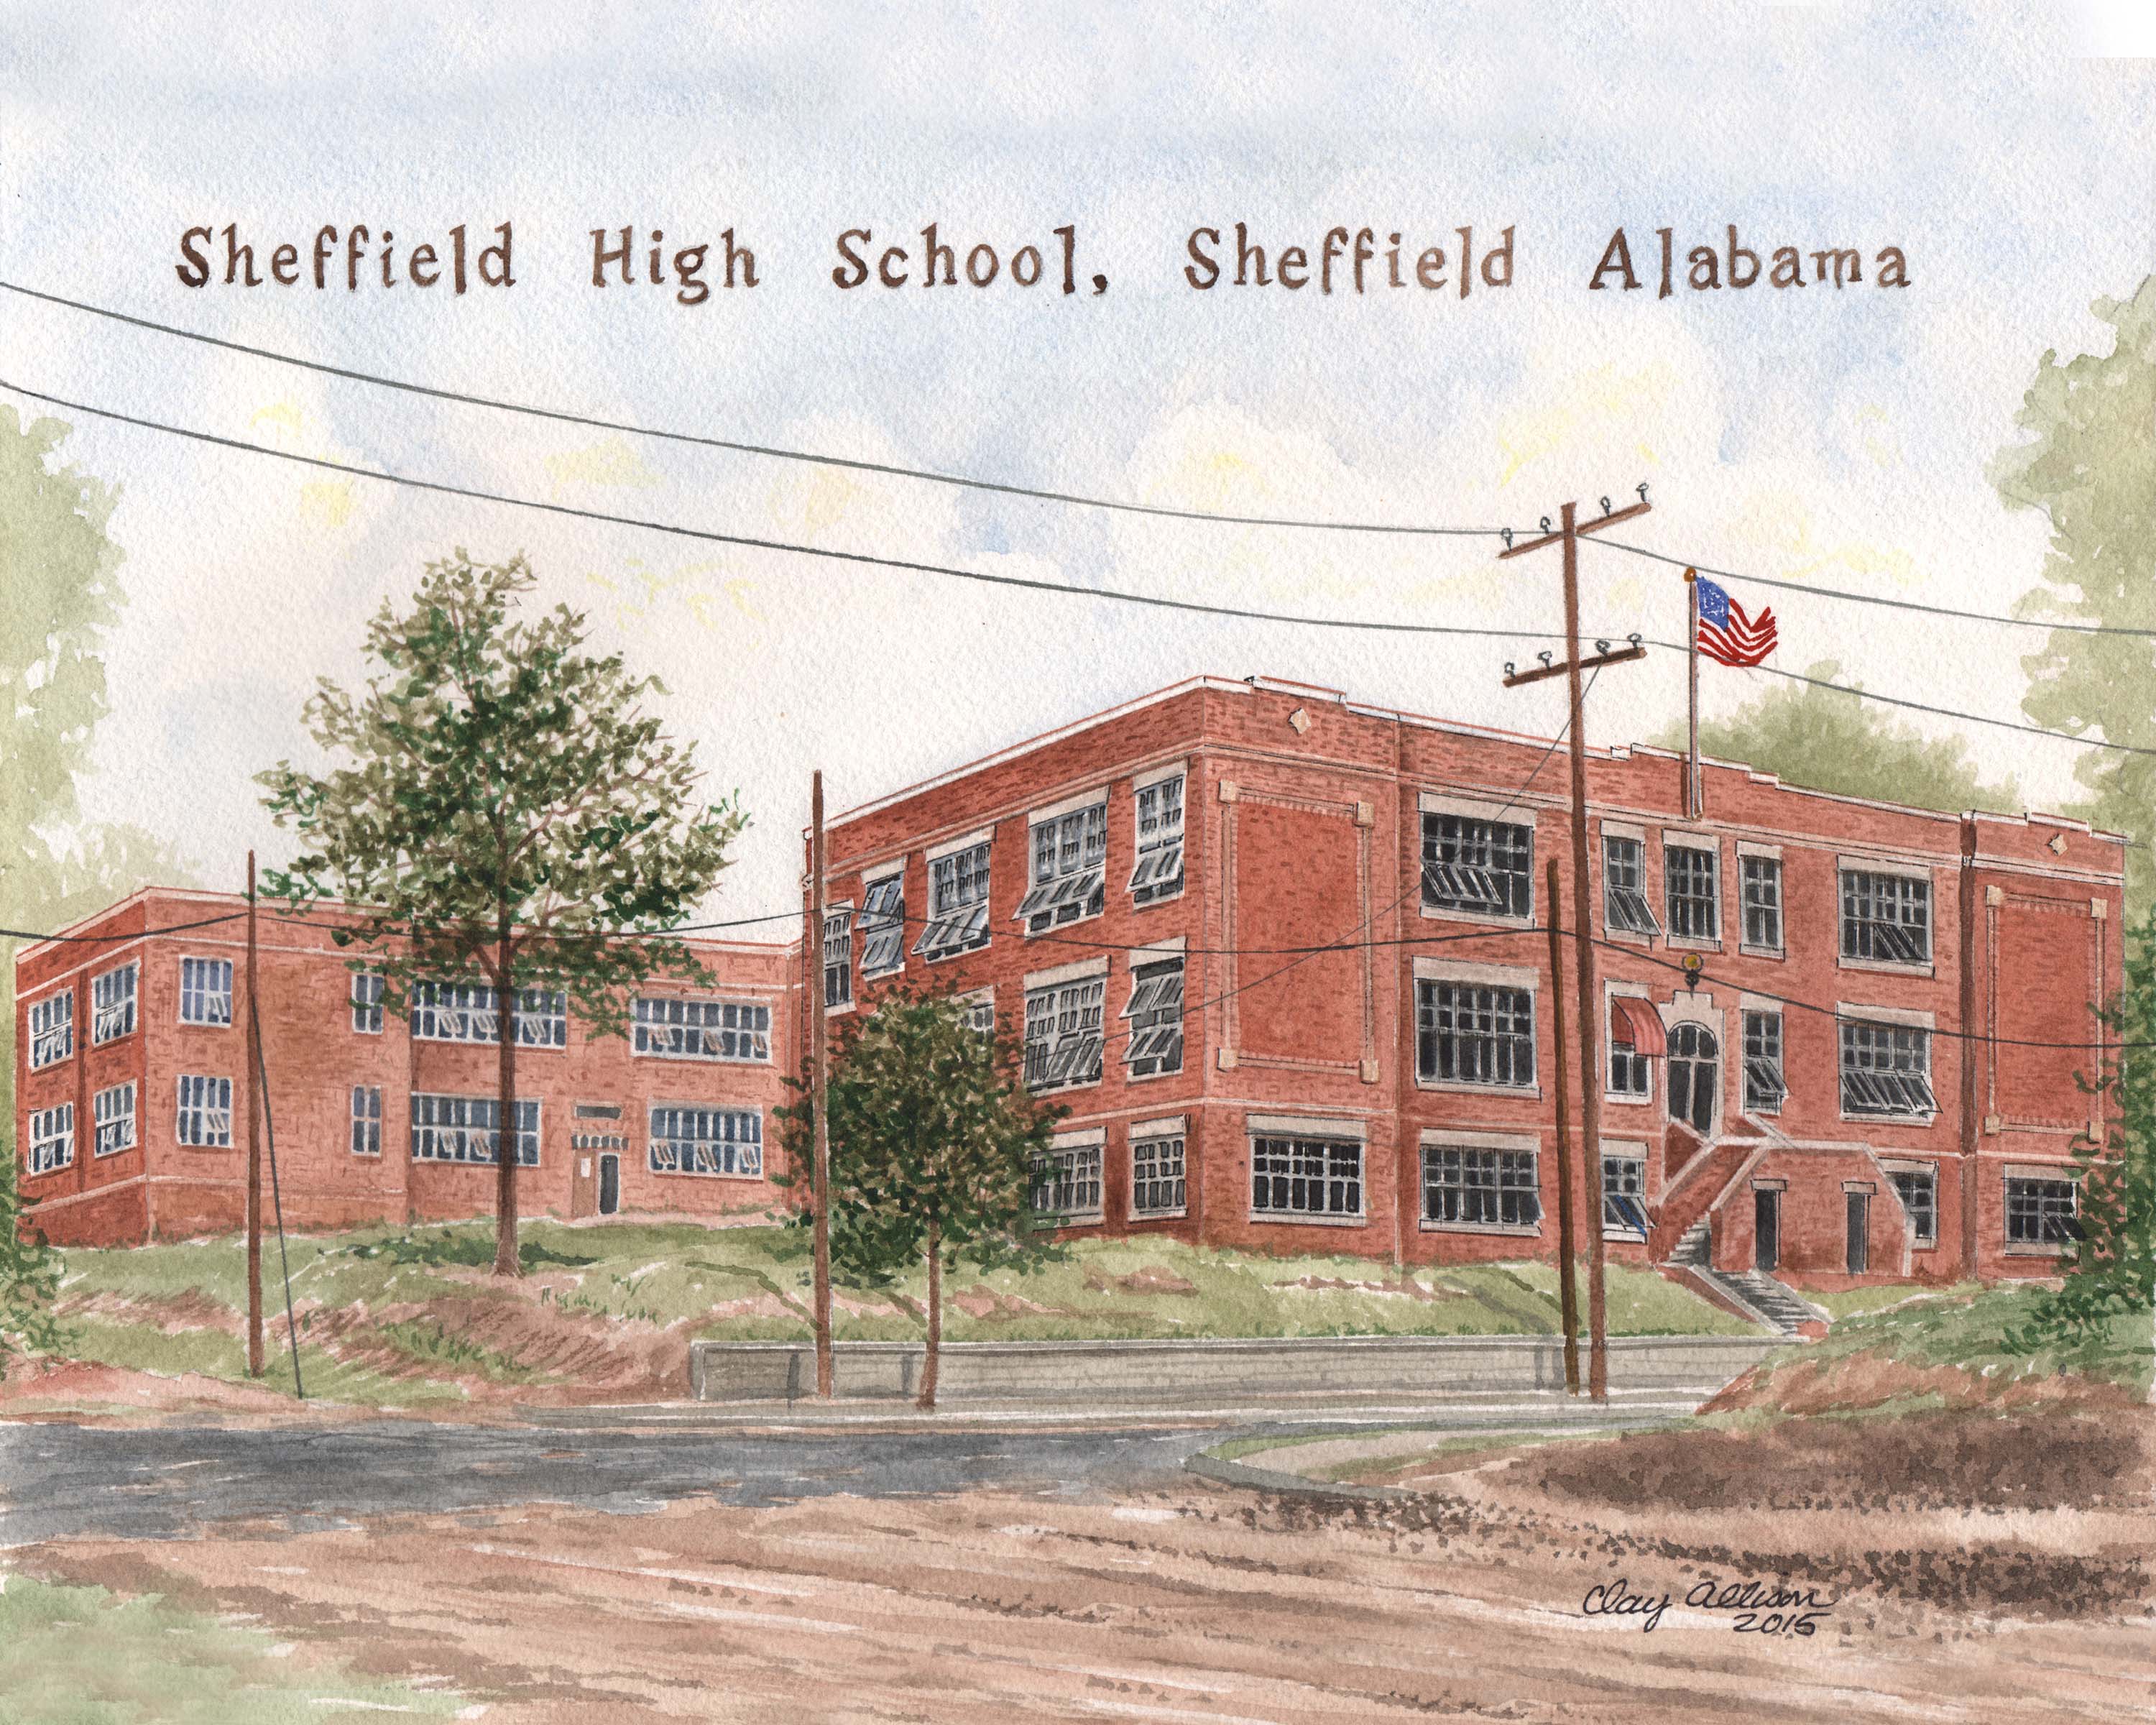 Sheffield High School, Sheffield Alabama
Clay Allison
2015